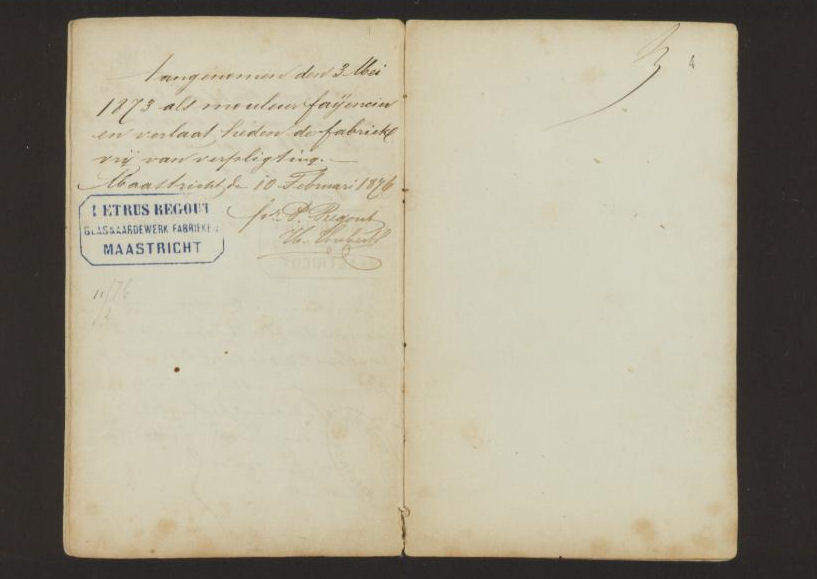 Aangenomen den 3 Mei
1873 als mouleur fayencier
en verlaat heden de fabriek
vrij van verpligting.
Maastricht, de 10 Februari 1876
PETRUS REGOUT
GLAS & AARDEWERK FABRIEKEN
MAASTRICHT
pr P. Regout
11/76
/2
3
4